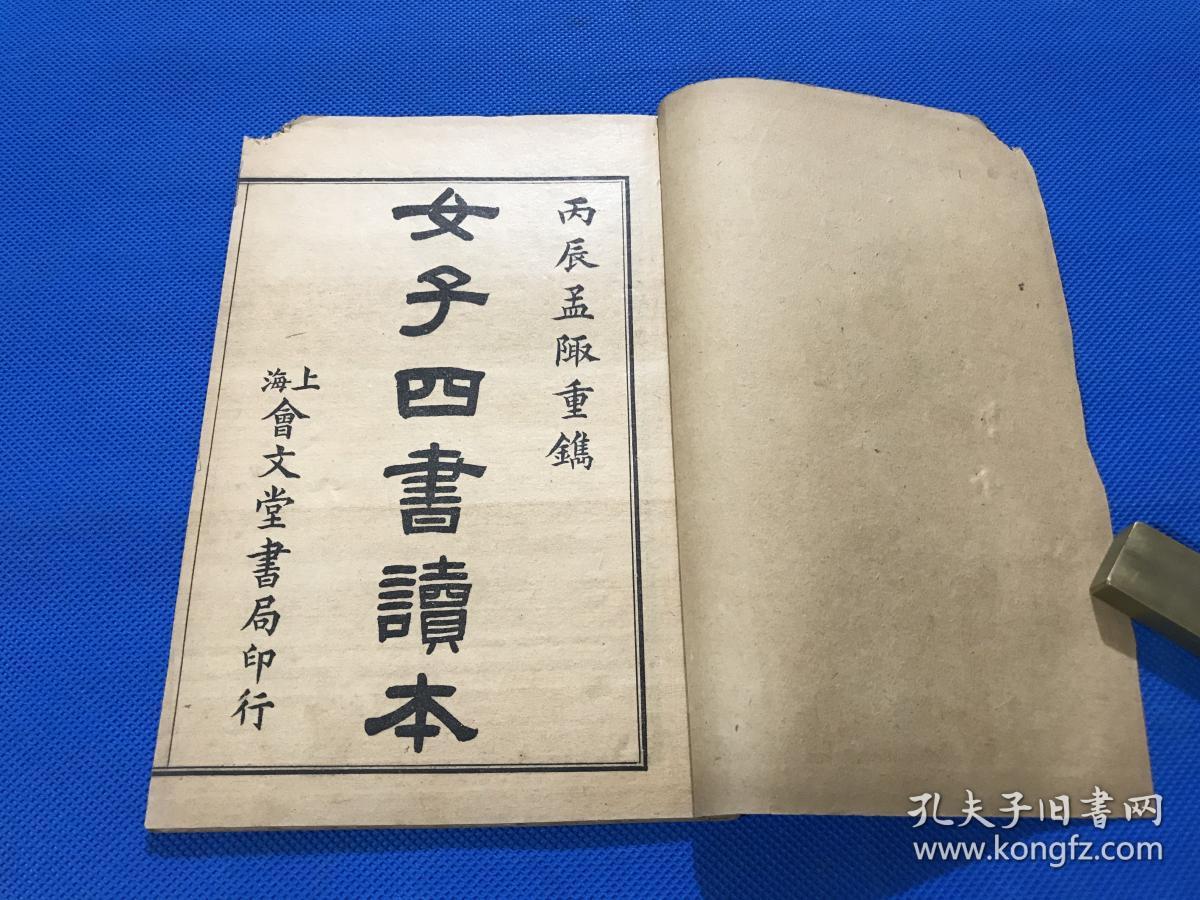 丙辰孟陬重鐫
女子四書讀本
上海會文堂書局印行
孔夫子旧书网
www.kongfz.com